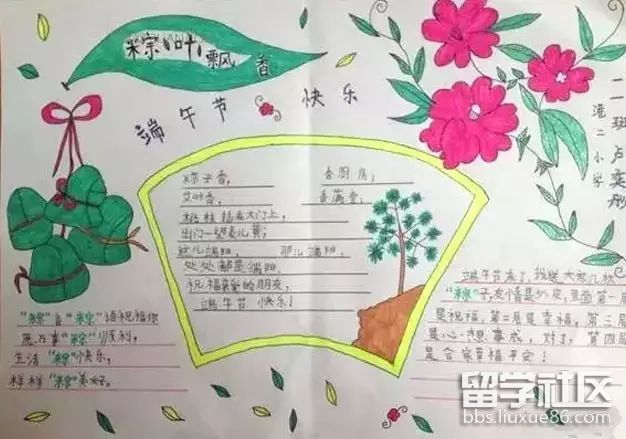 粽叶飘香
端午节 快乐
二一班卢奕彤
港二小学
粽子香, 香厨房;
艾叶香, 香满堂;
桃枝插在大门上,
出门一望麦儿黄;
这儿端阳, 那儿端阳,
处处都是端阳,
祝福亲爱的朋友,
端午节快乐!
愿万事"粽"顺利,
生活"粽"快乐,
样样"粽"美好。
端午节来了,我送大家几款
"粽"子,友情是外皮,里面第一层
是祝福,第二层是幸福,第三层
是心想事成,对了,第四层
是合家幸福平安!
留学社区
bbs.liuxue86.com